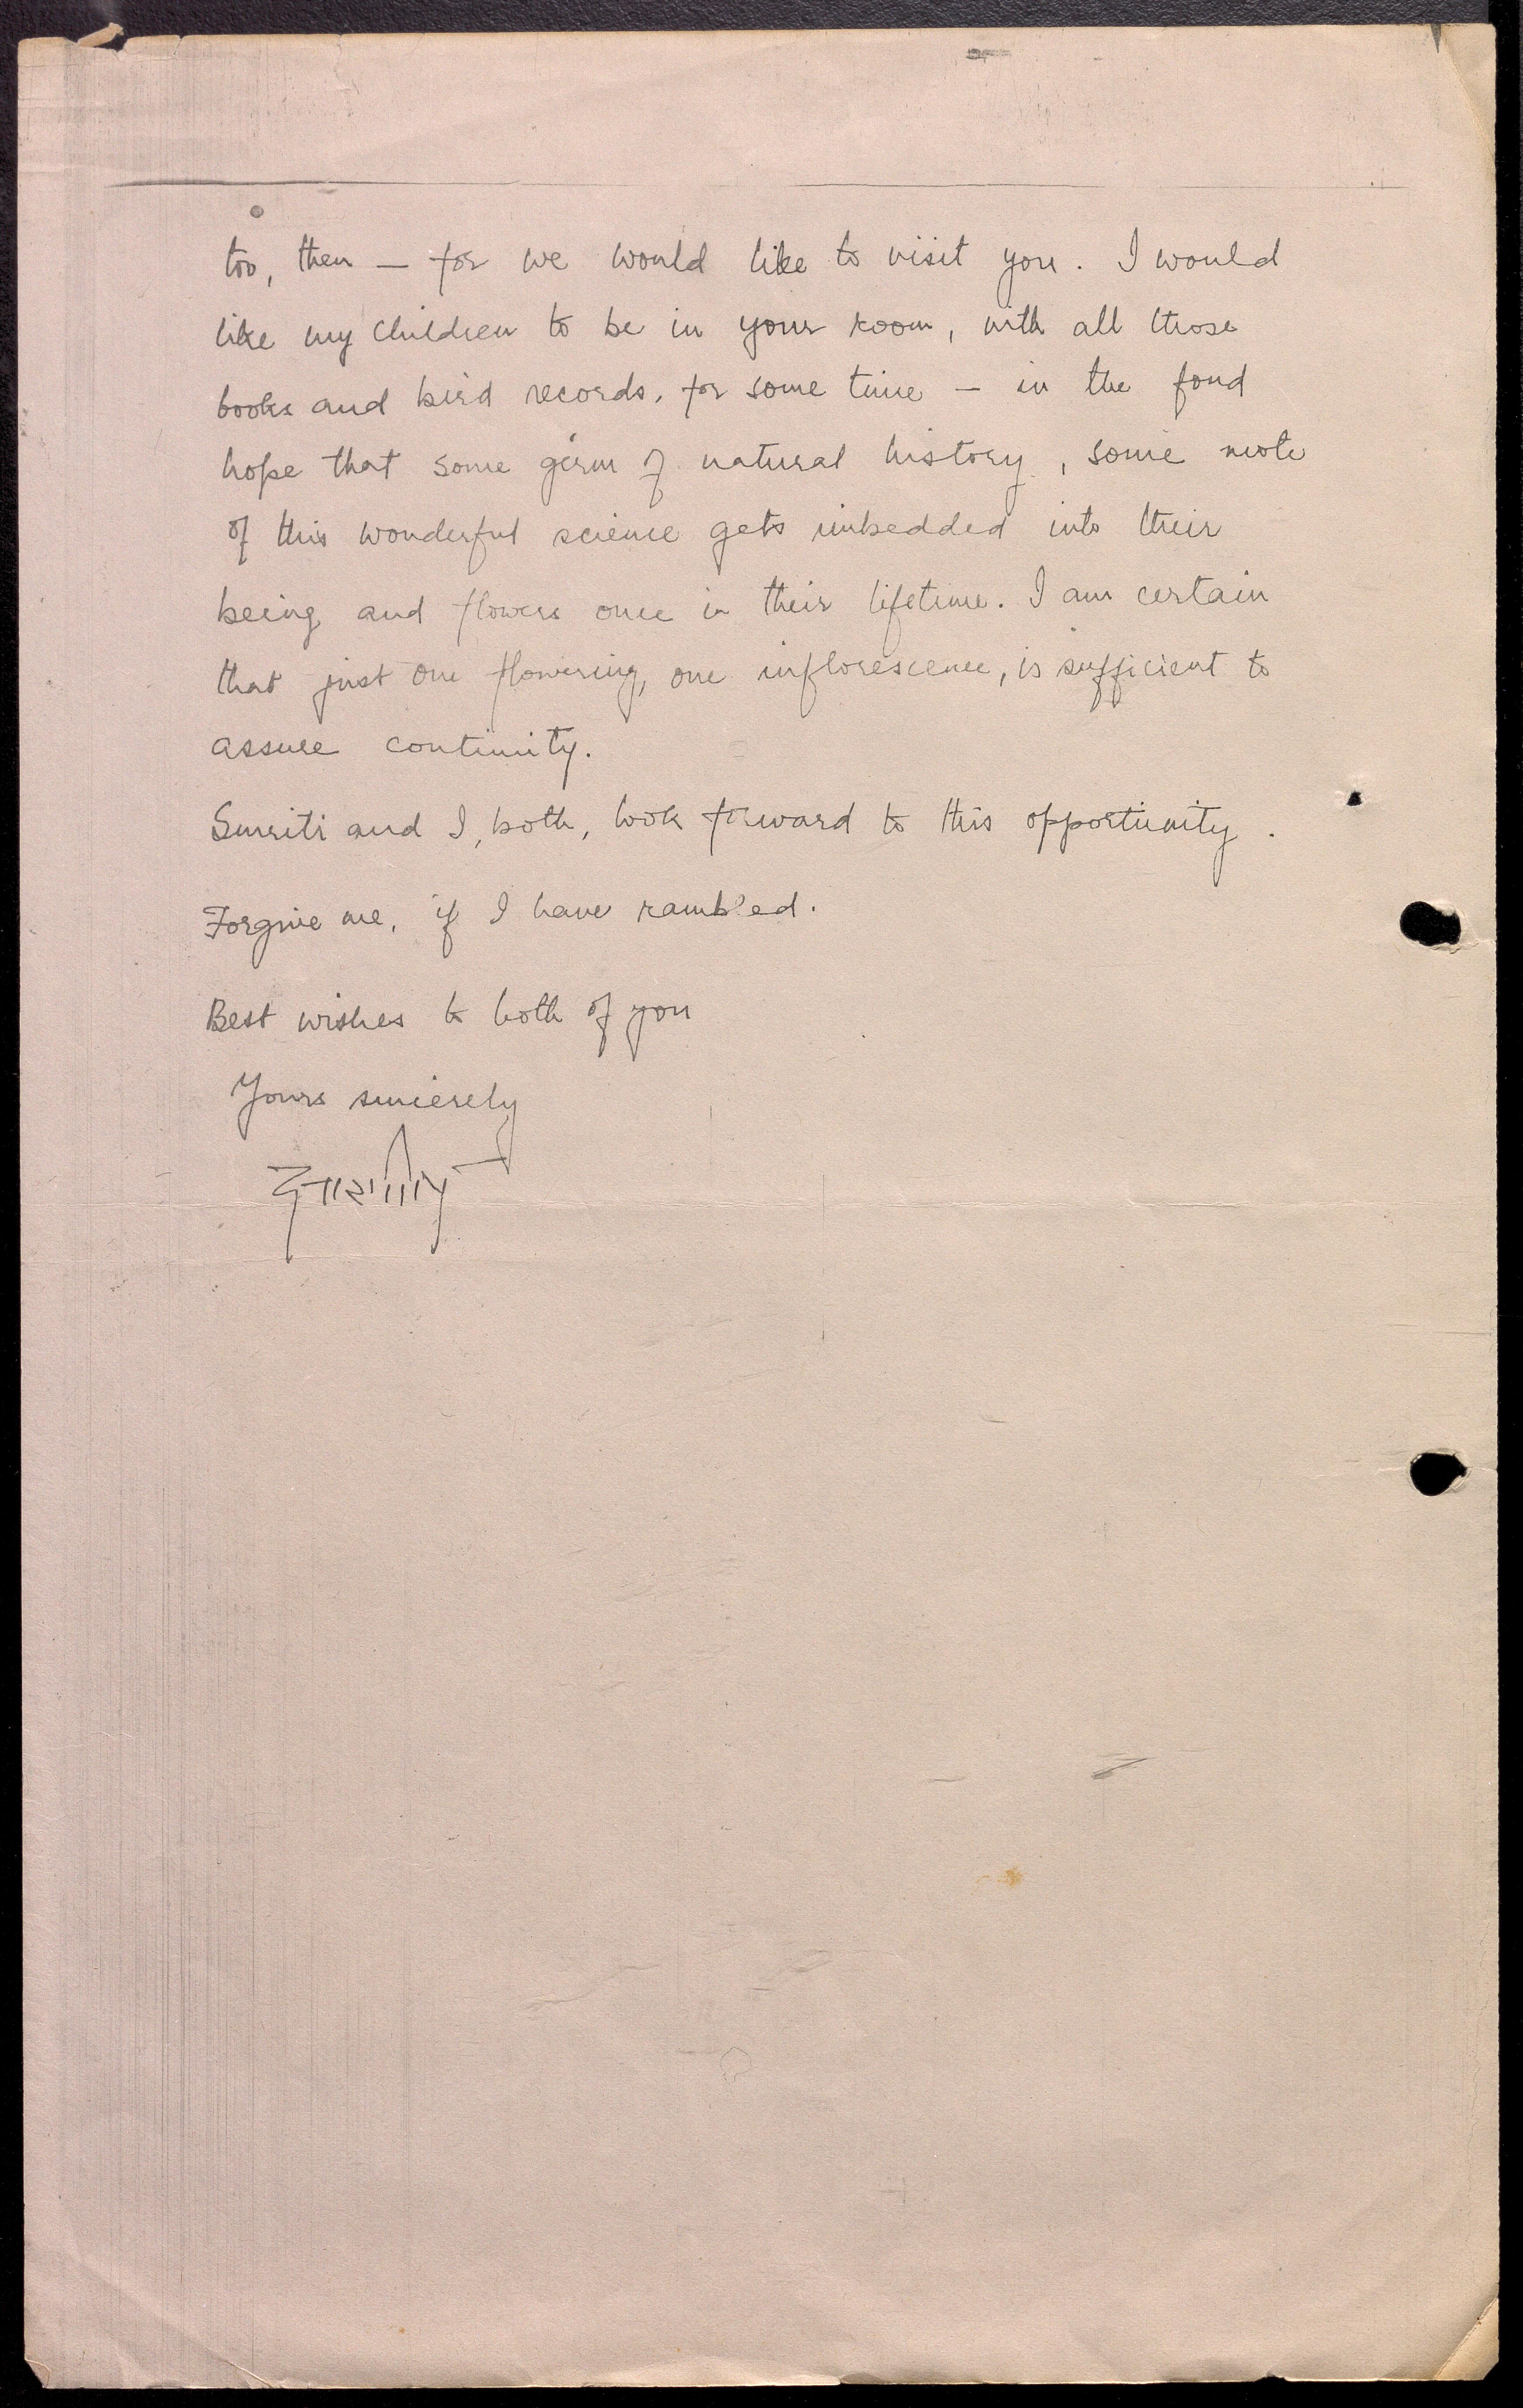 too, then – for we would like to visit you. I would
like my children to be in your room, with all those
books and bird records, for some time – in the fond
hope that some germ of natural history, some mote
of this wonderful science gets imbedded into their
being and flowers once in their lifetime. I am certain
that just one flowering, one inflorescence, is sufficient to
assure continuity.
Smriti and I, both, look forward to this opportunity.
Forgive me, if I have rambled.
Best wishes to both of you
Yours sincerely